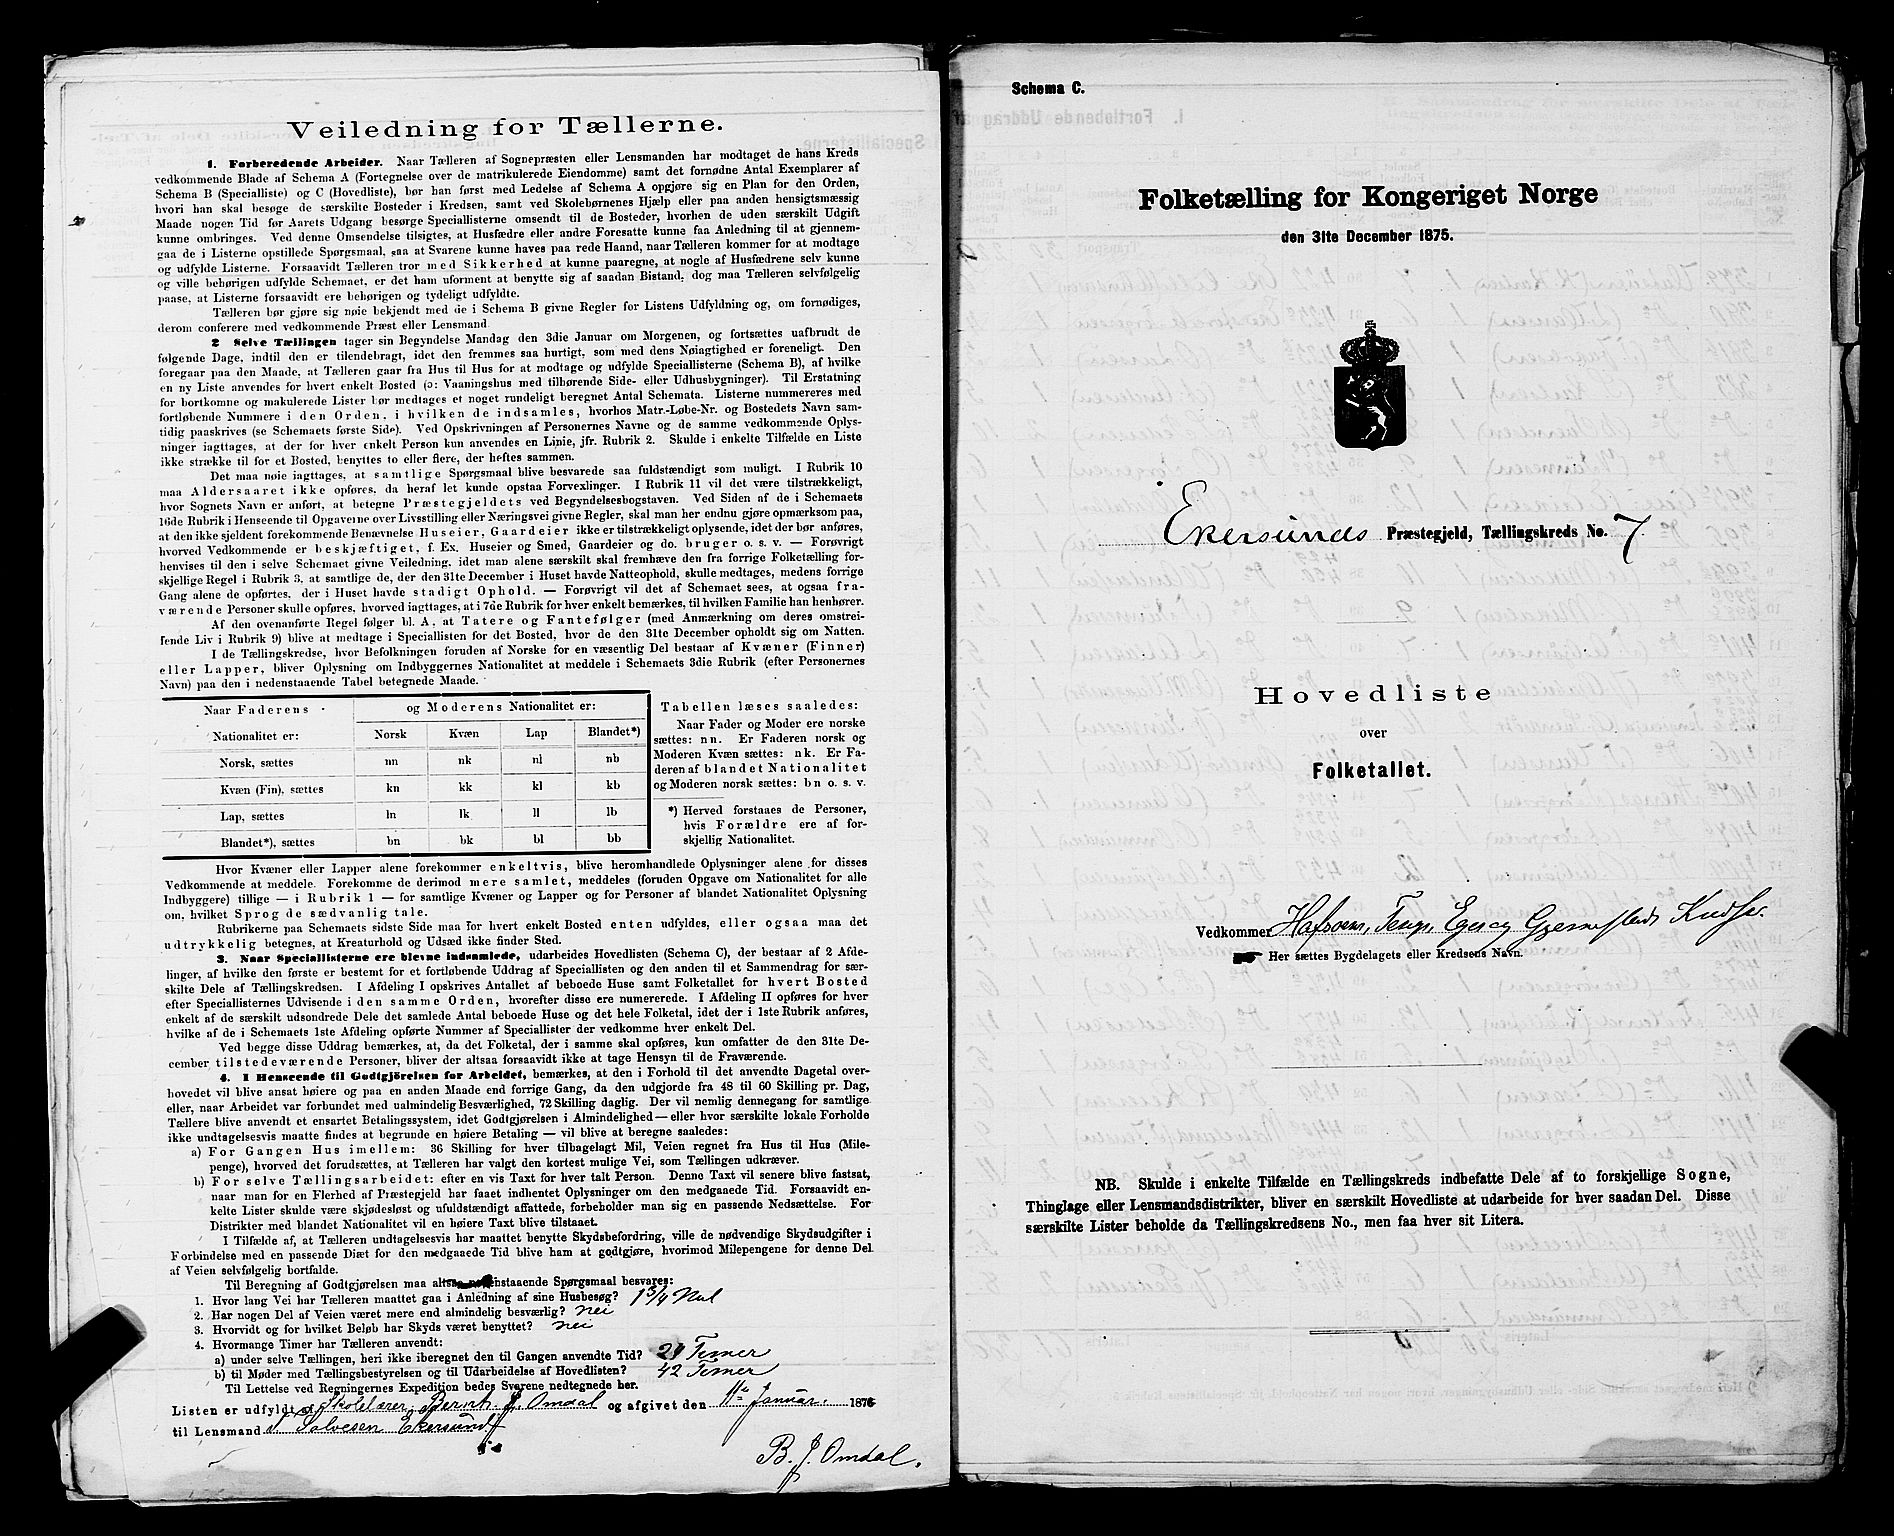 Veiledning for Tællerne.
1. Forberedende Arbeider. Naar Tælleren af Sognepræsten eller Lensmanden har modtaget de hans Kreds
vedkommende Blade af Schema A (Fortegnelse over de matrikulerede Eiendomme) samt det fornødne Antal Exemplarer af
Schema B (Specialliste) og C (Hovedliste), bør han først med Ledelse af Schema A opgjøre sig en Plan for den Orden,
hvori han skal besøge de særskilte Bosteder i Kredsen, samt ved Skolebørnenes Hjælp eller paa anden hensigtsmæssig
Maade nogen Tid før Aarets Udgang besørge Speciallisterne omsendt til de Bosteder, hvorhen de uden særskilt Udgift
kunne ombringes. Ved denne Omsendelse tilsigtes, at Husfædre eller andre Foresatte kunne faa Anledning til at gjennem-
gaa de i Listerne opstillede Spørgsmaal, saa at Svarene kunne haves paa rede Haand, naar Tælleren kommer for at modtage
og udfylde Listerne. Forsaavidt Tælleren tror med Sikkerhed at kunne paaregne, at nogle af Husfædrene selv kunne
og ville behørigen udfylde Schemaet, er det ham uforment at benytte sig af saadan Bistand, dog maa Tælleren selvfølgelig
paase, at Listerne forsaavidt ere behørigen og tydeligt udfyldte.
Tælleren bør gjøre sig nøie bekjendt med de i Schema B givne Regler for Listens Udfyldning og, om fornødiges,
derom conferere med vedkommende Præst eller Lensmand
2 Selve Tællingen tager sin Begyndelse Mandag den 3die Januar om Morgenen, og fortsættes uafbrudt de
følgende Dage, indtil den er tilendebragt, idet den fremmes saa hurtigt, som med dens Nøiagtighed er foreneligt. Den
foregaar paa den Maade, at Tælleren gaar fra Hus til Hus for at modtage og udfylde Speciallisterne (Schema B), af hvilke
en ny Liste anvendes for hvert enkelt Bosted (ɔ: Vaaningshus med tilhørende Side- eller Udhusbygninger). Til Erstatning
for bortkomne og makulerede Lister bør medtages et noget rundeligt beregnet Antal Schemata. Listerne nummereres med
fortløbende Nummere i den Orden, i hvilken de indsamles, hvorhos Matr.-Løbe-Nr. og Bostedets Navn sam-
tidig paaskrives (se Schemaets første Side). Ved Opskrivningen af Personernes Navne og de samme vedkommende Oplys-
ninger iagttages, at der for hver enkelt Person kun anvendes en Linie, jfr. Rubrik 2. Skulde i enkelte Tilfælde en Liste
ikke strække til for et Bosted, benyttes to eller flere, der heftes sammen.
Det maa nøie iagttages, at samtlige Spørgsmaal blive besvarede saa fuldstændigt som muligt. I Rubrik 10
maa Aldersaaret ikke opføres, da heraf let kunde opstaa Forvexlinger. I Rubrik 11 vil det være tilstrækkeligt,
hvor Sognets Navn er anført, at betegne Præstegjeldets ved Begyndelsesbogstaven. Ved Siden af de i Schemaets
16de Rubrik i Henseende til Opgaverne over Livsstilling eller Næringsvei givne Regler, skal man her endnu gjøre opmærksom paa,
at den ikke sjeldent forekommende Benævnelse Huseier, Gaardeier ikke er tilstrækkeligt oplysende, idet der bør anføres,
hvorved Vedkommende er beskjæftiget, f. Ex. Huseier og Smed, Gaardeier og do. bruger o. s. v. — Forøvrigt
henvises til den i selve Schemaet givne Veiledning, idet man alene særskilt skal fremhæve den fra forrige Folketælling for-
skjellige Regel i Rubrik 3, at samtlige de, der den 31te December i Huset havde Natteophold, skulle medtages, medens forrige
Gang alene de opførtes, der i Huset havde stadigt Ophold. — Forøvrigt vil det af Schemaet sees, at ogsaa fra-
værende Personer skulle opføres, hvorved iagttages, at i 7de Rubrik for hver enkelt bemærkes, til hvilken Familie han henhører.
Af den ovenanførte Regel følger bl. A. at Tatere og Fantefølger (med Anmærkning om deres omstrei-
fende Liv i Rubrik 9) blive at medtage i Speciallisten for det Bosted, hvor de den 31te December opholdt sig om Natten.
I de Tællingskredse, hvor Befolkningen foruden af Norske for en væsentlig Del bestaar af Kvæner (Finner)
eller Lapper, bliver Oplysning om Indbyggernes Nationalitet at meddele i Schemaets 3die Rubrik (efter Personernes
Navn) paa den i nedenstaaende Tabel betegnede Maade.
Naar Faderens og Moderens Nationalitet er:
Nationalitet er: Norsk Kvæn Lap Blandet*)
Norsk, sættes nn nk nl nb
Kvæn (Fin), sættes kn kk kl kb
Lap, sættes ln lk ll lb
Blandet*), sættes bn bk bl bb
Tabellen læses saaledes:
Naar Fader og Moder ere norske
sættes: nn. Er Faderen norsk og
Moderen Kvæn sættes: nk. Er Fa-
deren af blandet Nationalitet
og Moderen norsk sættes: bn o. s. v.
*) Herved forstaaes de Personer,
hvis Forældre ere af for-
skjellig Nationalitet.
Hvor Kvæner eller Lapper alene forekommer enkeltvis, blive heromhandlede Oplysninger alene for disses
Vedkommende at meddele. Forekomme de derimod mere samlet, meddeles (foruden Opgave om Nationalitet for alle
Indbyggere) tillige — i Rubrik 1 — for samtlige Kvæner og Lapper og for Personer af blandet Nationalitet Oplysning
om, hvilket Sprog de sædvanlig tale.
Rubrikerne paa Schemaets sidste Side maa for hvert enkelt Bosted enten udfyldes, eller ogsaa maa det
udtrykkelig betegnes, at Kreaturhold og Udsæd ikke finder Sted.
3. Naar Speciallisterne ere blevne indsamlede, udarbeides Hovedlisten (Schema C), der bestaar af 2 Afde-
linger, af hvilke den første er bestemt for et fortløbende Uddrag af Speciallisten og den anden til et Sammendrag for sær-
skilte Dele af Tællingskredsen. I Afdeling I opskrives Antallet af beboede Huse samt Folketallet for hvert Bosted
efter Speciallisternes Udvisende i den samme Orden, hvorefter disse ere numererede. I Afdeling II opføres for hver
enkelt af de særskilt udsondrede Dele det samlede Antal beboede Huse og det hele Folketal, idet der i 1ste Rubrik anføres,
hvilke af de i Schemaets 1ste Afdeling opførte Nummer af Speciallister der vedkomme hver enkelt Del.
Ved begge disse Uddrag bemærkes, at, da det Folketal, der i samme skal opføres, kun omfatter de den 31te De-
cember tilstedeværende Personer, bliver der altsaa forsaavidt ikke at tage Hensyn til de Fraværende.
4. I Henseende til Godtgjörelsen for Arbeidet, bemærkes, at den i Forhold til det anvendte Dagetal over-
hovedet vil blive ansat høiere og paa en anden Maade end forrige Gang, da den udgjorde fra 48 til 60 Skilling pr. Dag,
eller, naar Arbeidet var forbundet med ualmindelig Besværlighed, 72 Skilling daglig. Der vil nemlig dennegang for samtlige
Tællere blive anvendt et ensartet Betalingssystem, idet Godtgjørelsen i Almindelighed — eller hvor særskilte lokale Forholde
ikke undtagelsesvis maatte findes at begrunde en høiere Betaling — vil blive at beregne saaledes:
a) For Gangen Hus imellem: 36 Skilling for hver tilbagelagt Mil, Veien regnet fra Hus til Hus (Mile-
penge), hvorved det forudsættes, at Tælleren har valgt den kortest mulige Vei, som Tællingen udkræver.
b) For selve Tællingsarbeidet: efter en vis Taxt for hver talt Person. Denne Taxt vil senere blive fastsat,
naar man for en Flerhed af Præstegjeld har faaet indhentet Oplysninger om den medgaaede Tid. Forsaavidt en-
kelte Lister skulde være skjødesløst og ufuldstændigt affattede, forbeholder man sig en passende Nedsættelse. For
Distrikter med blandet Nationalitet vil en høiere Taxt blive tilstaaet.
I Tilfælde af, at Tælleren undtagelsesvis har maattet benytte Skydsbefordring, ville de nødvendige Skydsudgifter i
Forbindelse med en passende Diæt for den medgaaede Tid blive ham at godtgjøre, hvorimod Milepengene for denne Del
af Veien selvfølgelig bortfalde.
Til Beregning af Godtgjørelsen maa altsaa nedenstaaende Spørgsmaal besvares:
1. Hvor lang Vei har Tælleren maattet gaa i Anledning af sine Husbesøg? 1 3/4 Mil
2. Har nogen Del af Veien været mere end almindelig besværlig? nei
3. Hvorvidt og for hvilket Beløb har Skyds været benyttet? nei
4. Hvormange Timer har Tælleren anvendt:
a) under selve Tællingen, heri ikke iberegnet den til Gangen anvendte Tid? 21 Timer
b) til Møder med Tællingsbestyrelsen og til Udarbeidelse af Hovedlisten? 42 Timer
Til Lettelse ved Regningernes Expedition bedes Svarene nedtegnede her.
Listen er udfyldt af Skolelærer Bernt. J. Omdal og afgivet den 11te Januar. 1876
til Lensmand Salvesen Ekersund
B. J. Omdal.
Schema C.
Folketælling for Kongeriget Norge
den 31te December 1875.
Ekersunds Præstegjeld, Tællingskreds No. 7.
Hovedliste
over
Folketallet.
Vedkommer Hafsoens, Tengs, Eger og Gjermestads Kreds.
Her sættes Bygdelagets eller Kredsens Navn.
NB. Skulde i enkelte Tilfælde en Tællingskreds indbefatte Dele af to forskjellige Sogne,
Thinglage eller Lensmandsdistrikter, bliver en særskilt Hovedliste at udarbeide for hver saadan Del. Disse
særskilte Lister beholde da Tællingskredsens No., men faa hver sit Litera.